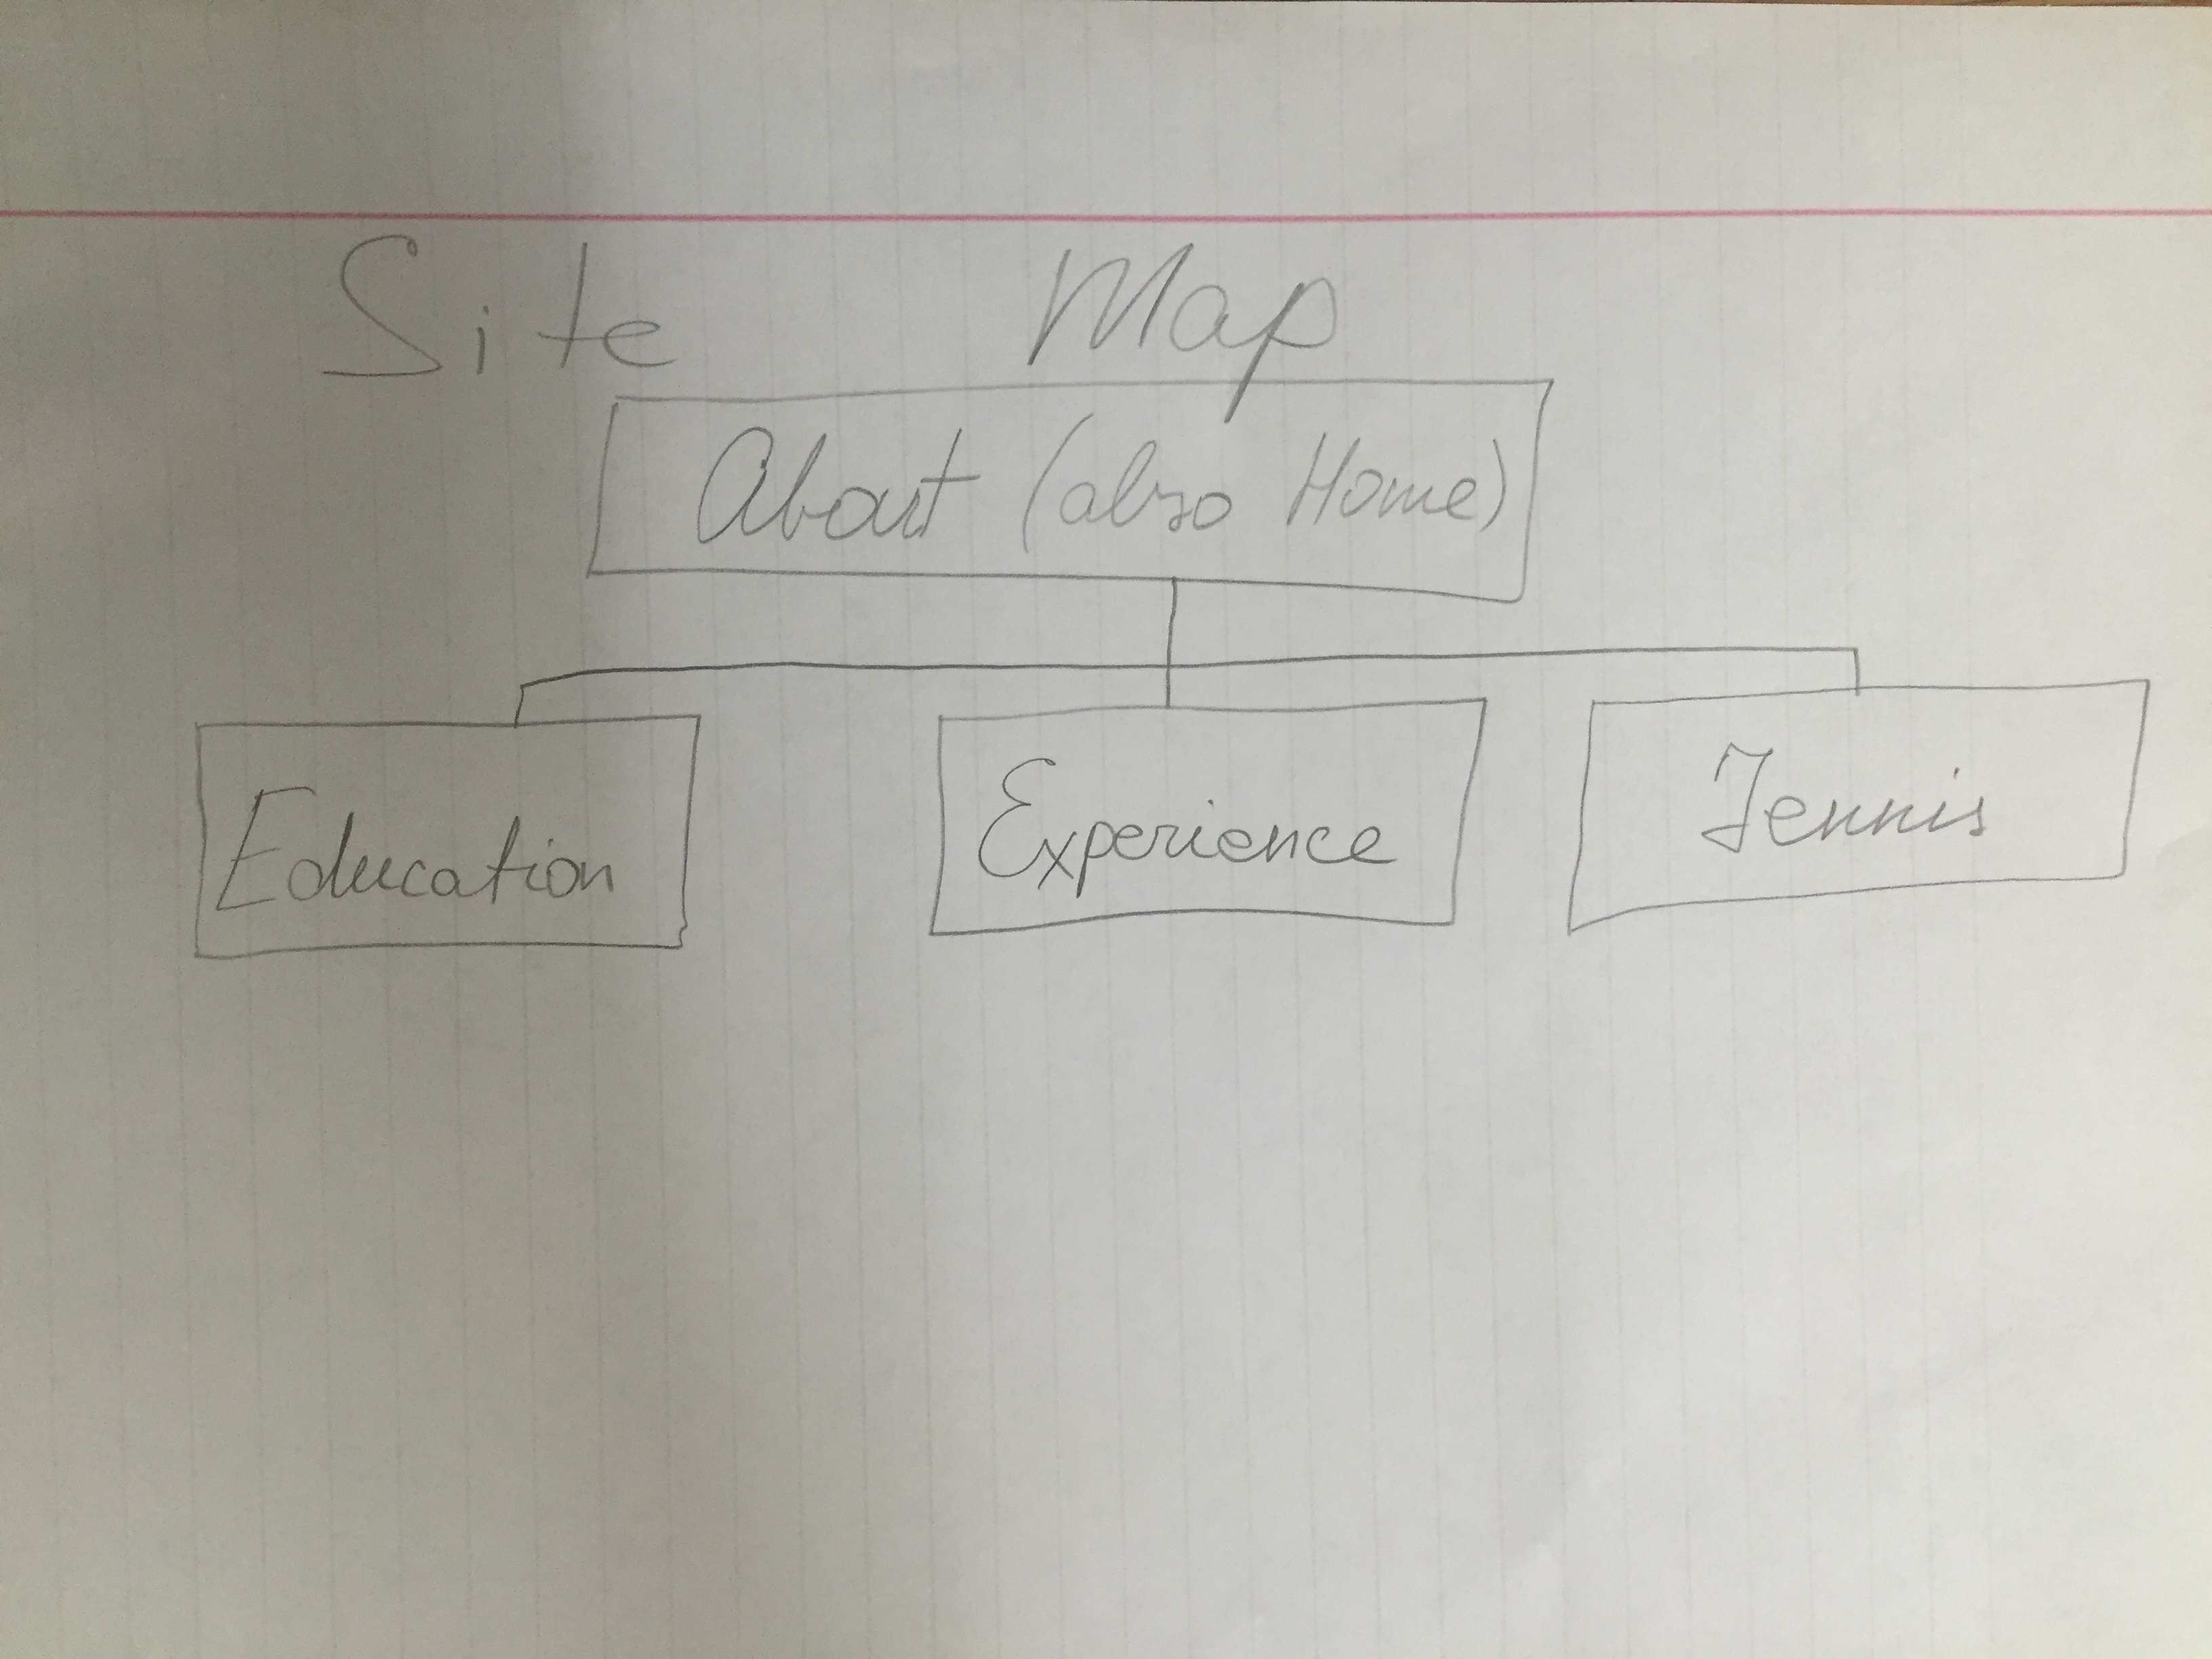 Site Map
About (also Home)
Education
Experience
Tennis